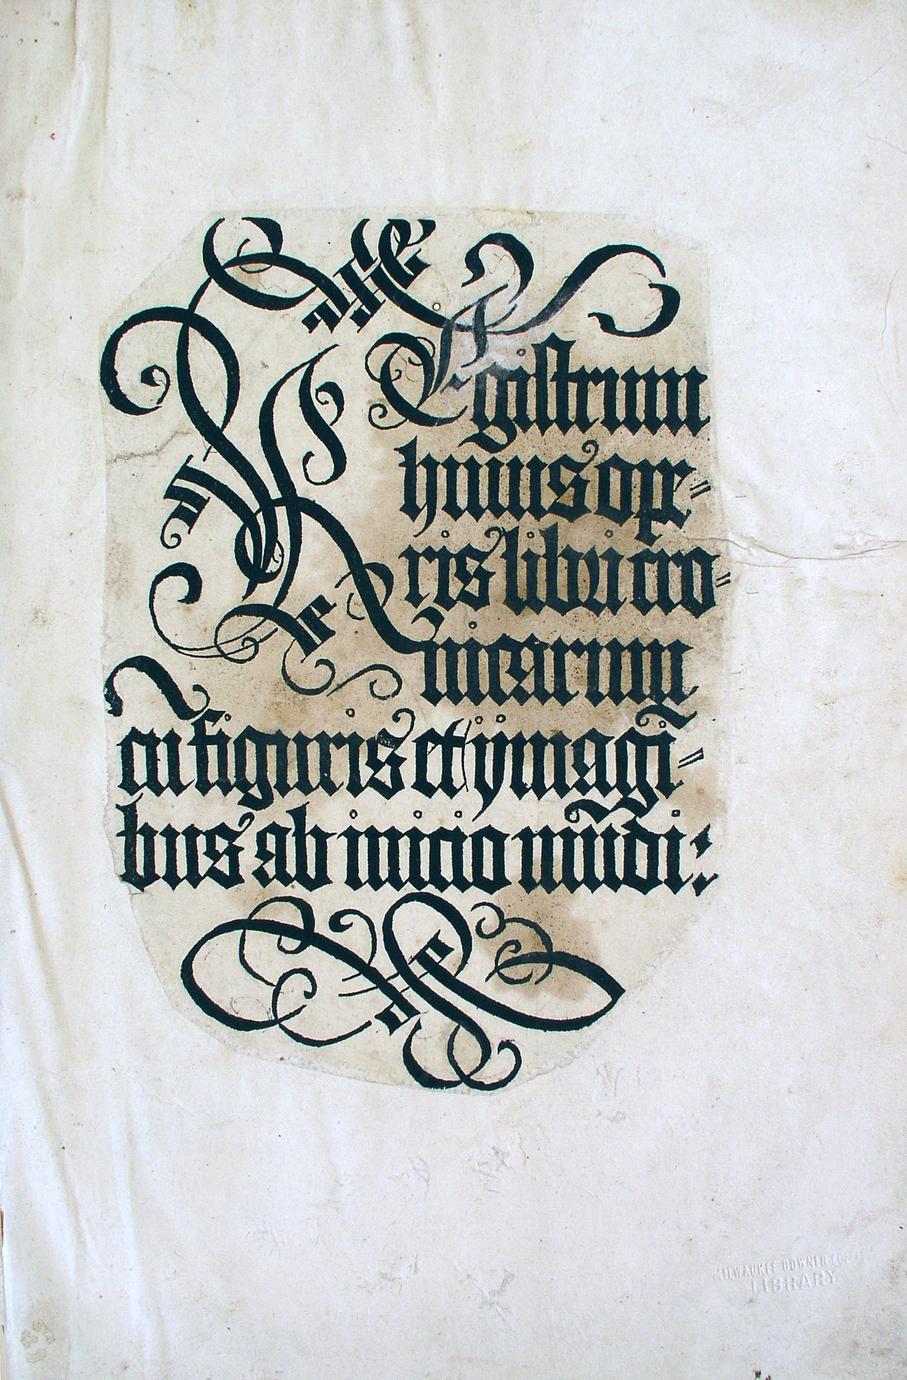 Registrum
huius ope-
ris libri cro-
nicarum
cũ figuris et ymagĩ-
bus ab inicio mũdi:
MILWAUKEE DOWNER COLLEGE
LIBRARY